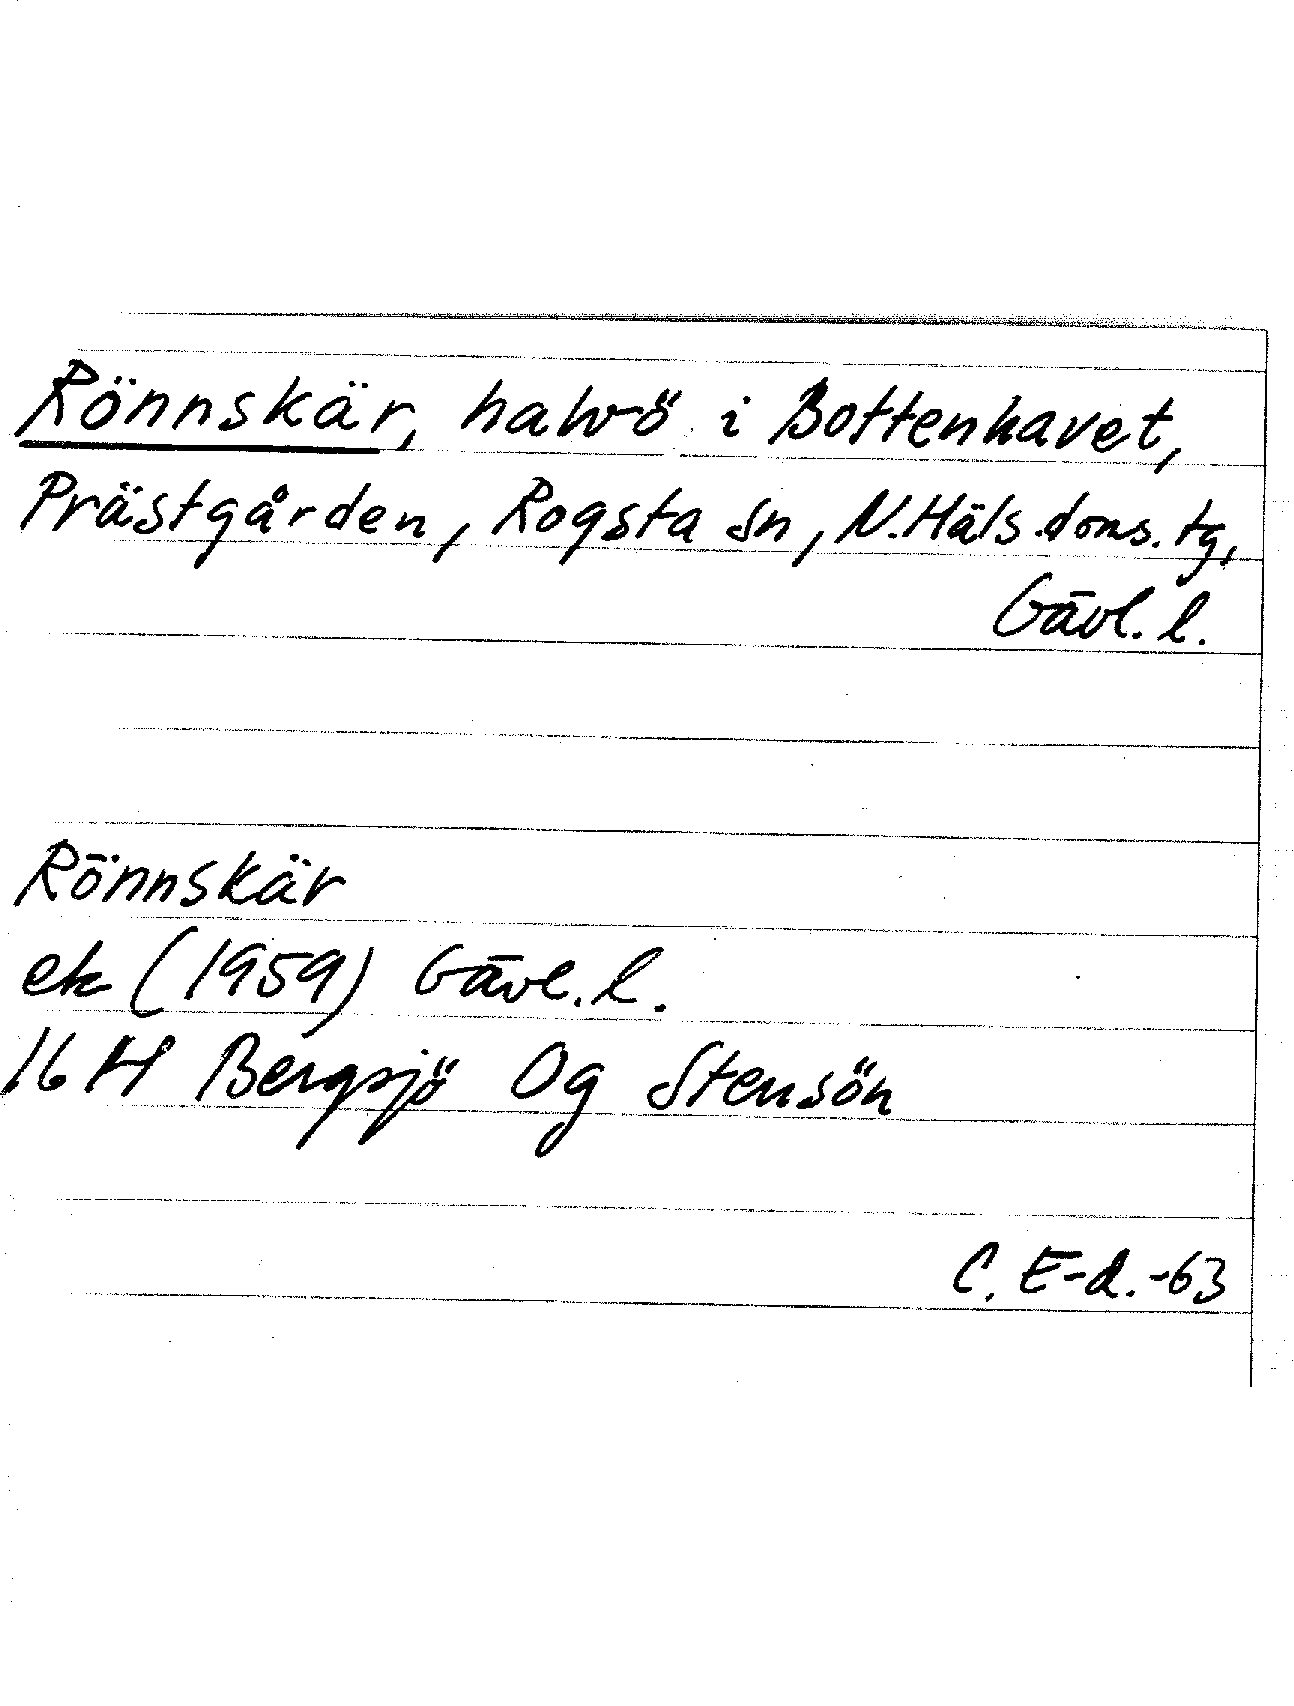 Rönnskär, halvö i Bottenhavet,
Prästgården, Rogsta sn, N.Häls.doms.tg,
Gävl. l.
Rönnskär
ek (1959) Gävl. l.
16 H Bergsjö 0g Stensön
C. E-d. -63